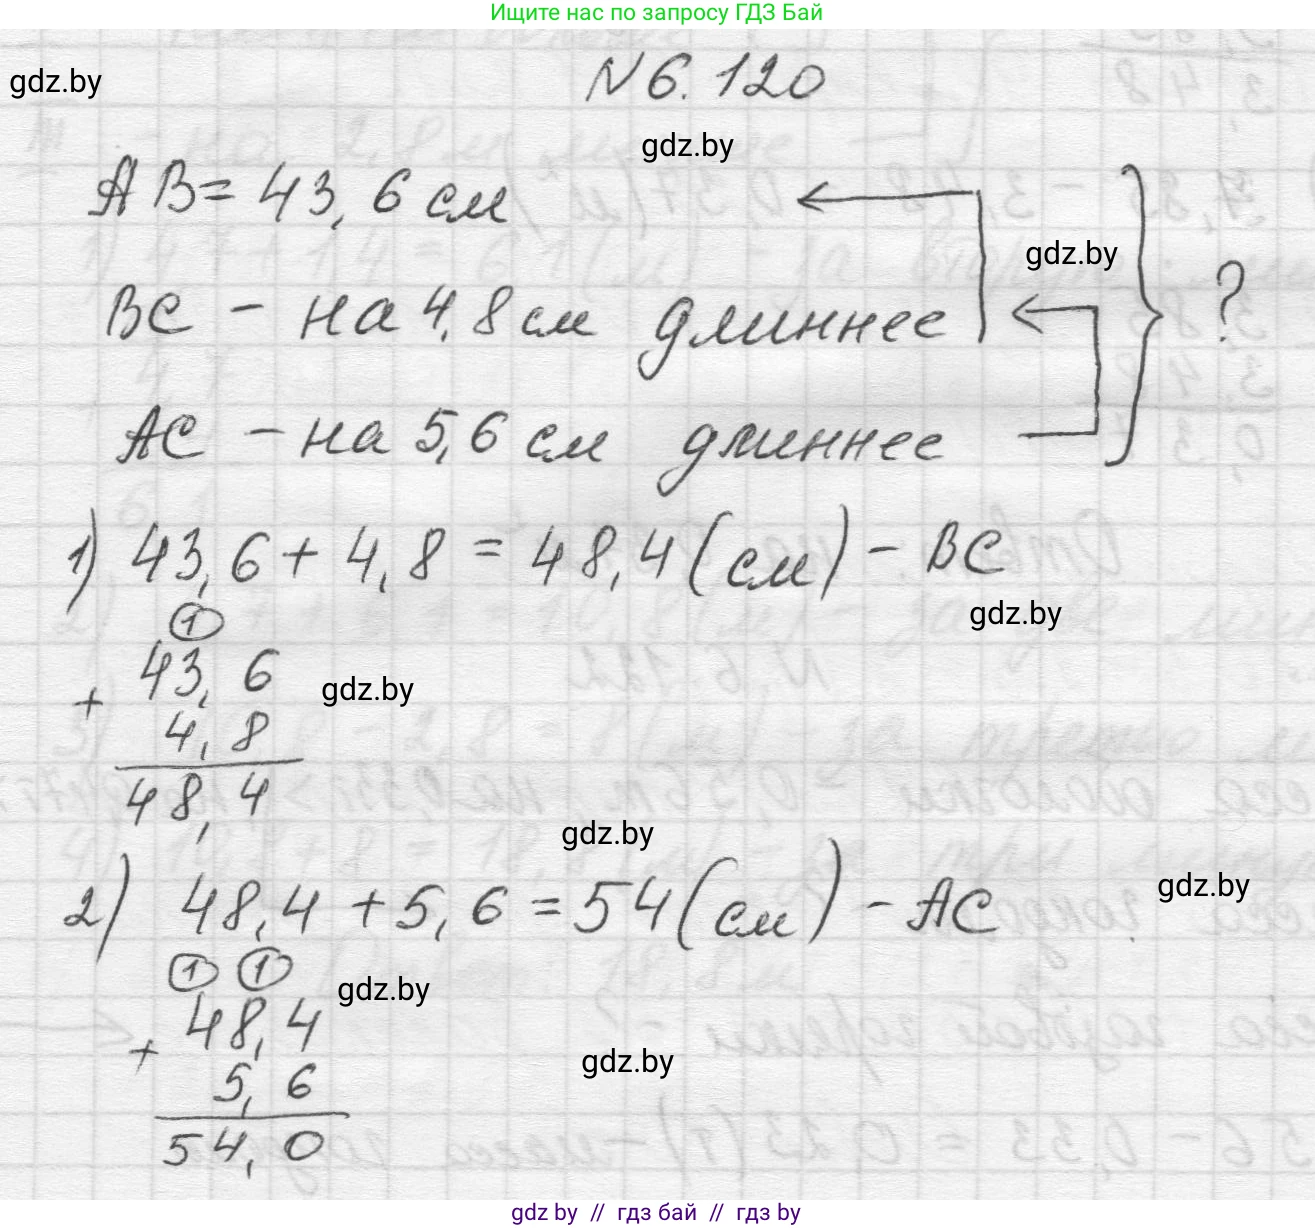 Ищите нас по запросу ГДЗ Бай
gdz.by
N 6. 120
gdz.by
AB = 43, 6 см
gdz.by
BC - на 4, 8 см длиннее
?
AC - на 5, 6 см длиннее
1) 43, 6 + 4, 8 = 48, 4 (см) - BC
gdz.by
1
43, 6
gdz.by
+
4, 8
48, 4
gdz.by
2) 48, 4 + 5, 6 = 54 (см) - AC
gdz.by
1 1
gdz.by
48, 4
+
gdz.by
5, 6
54, 0
gdz by // гдз бай // гдз by